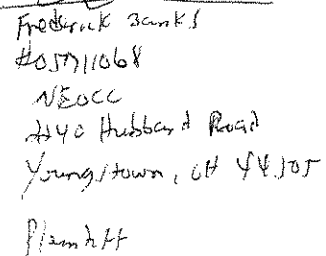 Frederick Banks
#05711068
NEOCC
2240 Hubbard Road
Youngstown, OH 44505
Plaintiff